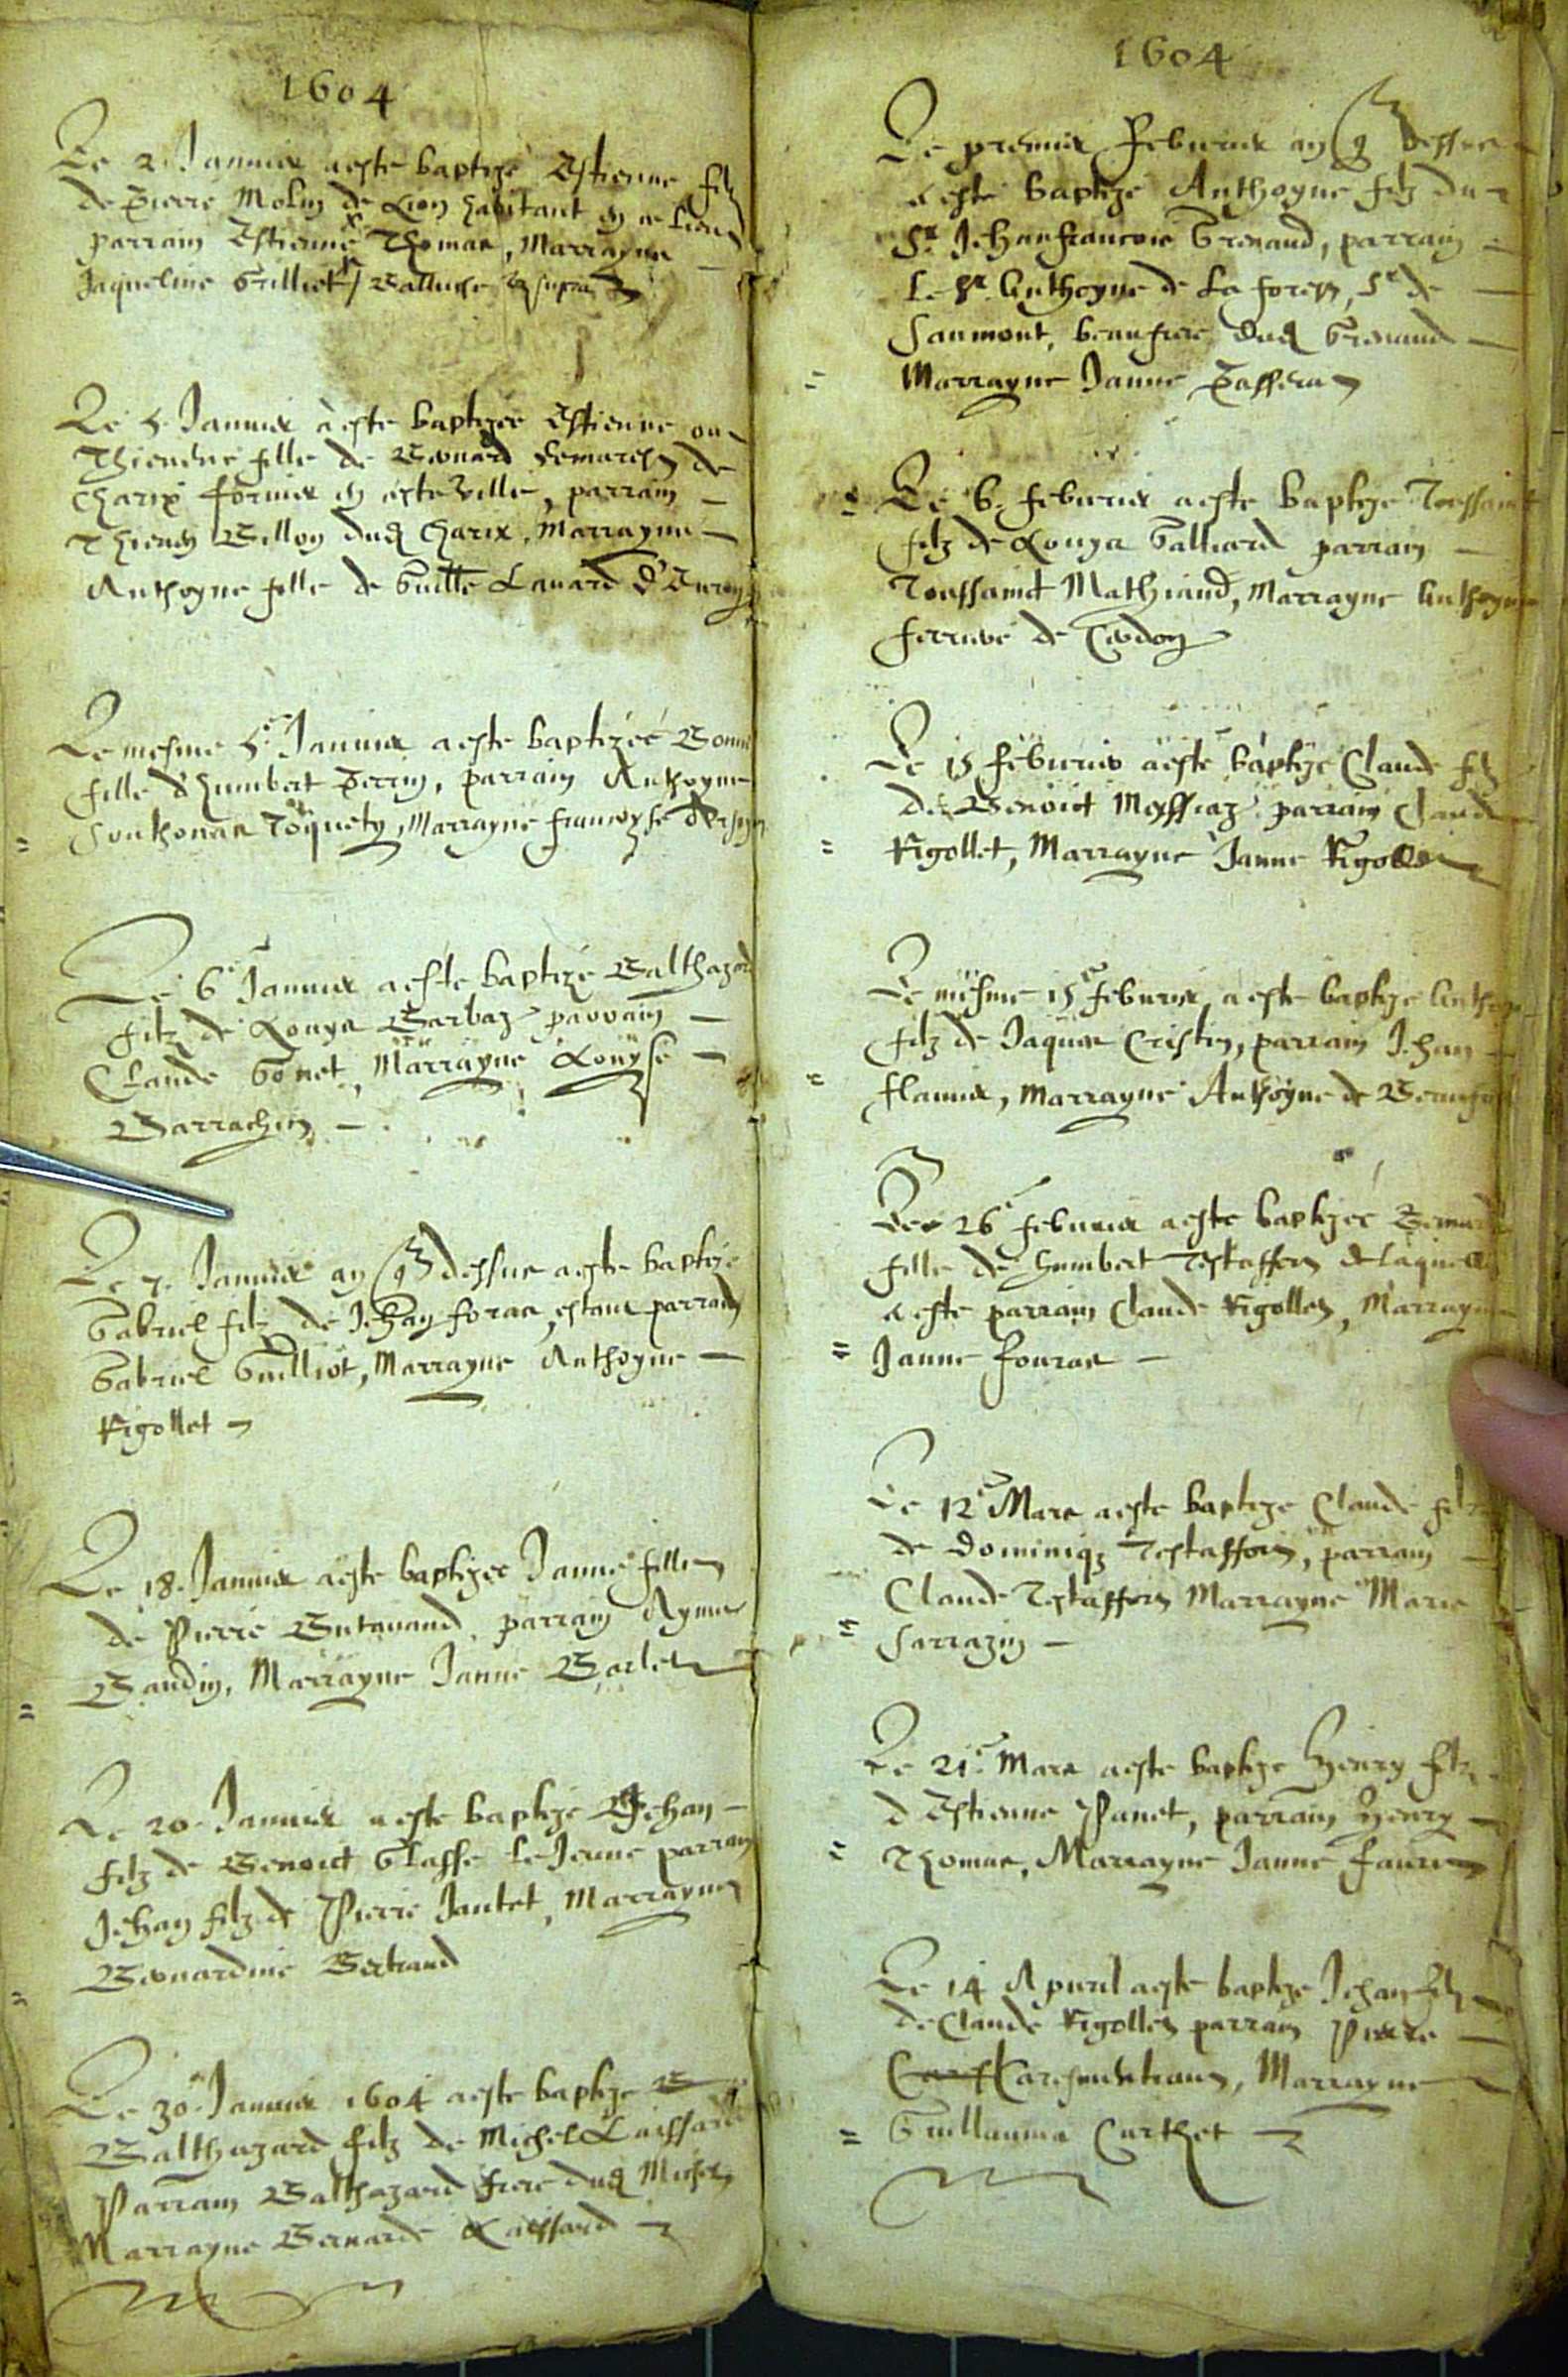 1604
Le 2. Janvier a este baptizé Estienne filz
de Pierre Molin de Lion habitant en ce lieu
parrain Estienne Thomas, Marrayne
Jaqueline Grilliet / ut supra
Le 5. Janvier a este baptizée Estienne ou
Thienene fille de Bernard de
Charix fornier en ceste ville, parrain
Thienen Billon dud Charix, Marrayne
Anthoyne fille de Guille Lanard
Le mesme 5e Janvier a este baptizéé Bonne
fille d'humbert Perrin, parrain Anthoyne
Sonthonas Toquety, Marrayne francoyse
Le 6e Janvier a este baptizé Balthazard
filz de Louys Barbaz parrain
Claude Gonet, Marrayne Louyse
Barrachin
Le 7. Janvier an q dessus a este baptizé
Gabriel filz de Jehan foras, estant parrain
Gabriel Guilliot, Marrayne Anthoyne
Rigollet
Le 18. Janvier a este baptizee Janne fille
de Pierre Butavand, parrain Ayme
Gaudin, Marrayne Janne Barlet
Le 20. Janvier a este baptize Jehan
filz de Benoict Glasse le Jeune parrain
Jehan filz de Pierre Jantet, Marrayne
Bernardine Bertrand
Le 30e Janvier 1604 a este baptize
Balthazard filz de Michel Laissard
Parrain Balthazard frere dud Michel
Marrayne Bernarde Laissard
1604
Le premier Febvrier an q dessus
a este baptizé Anthoyne filz du
Sr. Jehanfrancois Grenaud, parrain
Le Sr. Anthoyne de La forest, Sr de
Saumont, beaufrere dud Grenaud
Marrayne Janne Passerat
Le 6. febvrier a este baptize Toussaint
filz de Louys Galliard parrain
Toussainct Mathiand, Marrayne Anthoyne
ferruve de Cerdon
Le 15 febvrier a este baptizé Claude filz
de Benoict Meyssiaz parrain Claude
Rigollet, Marrayne Janne Rigollet
Le mesme 15e febvrier a este baptize Anthoyne
filz de Jaques Cristin, parrain Jehan
flanier, Marrayne Anthoyne de
Le 26e febvrier a este baptizee Bernarde
fille de humbert Testaffort de laquelle
a este parrain Claude Rigollet, Marrayne
Janne fouras
Le 12e Mars a este baptize Claude filz
de Dominiq Testaffort, parrain
Claude Testaffort Marrayne Marie
Sarrazin
Le 21e Mars a este baptize Henry filz
d Estienne Panet, parrain Henry
Thomas, Marrayne Janne Faurer
Le 14 Apvril a este baptize Jehan filz
de Claude Rigollet parrain Pierre
Marrayne
Guillauma Curthet